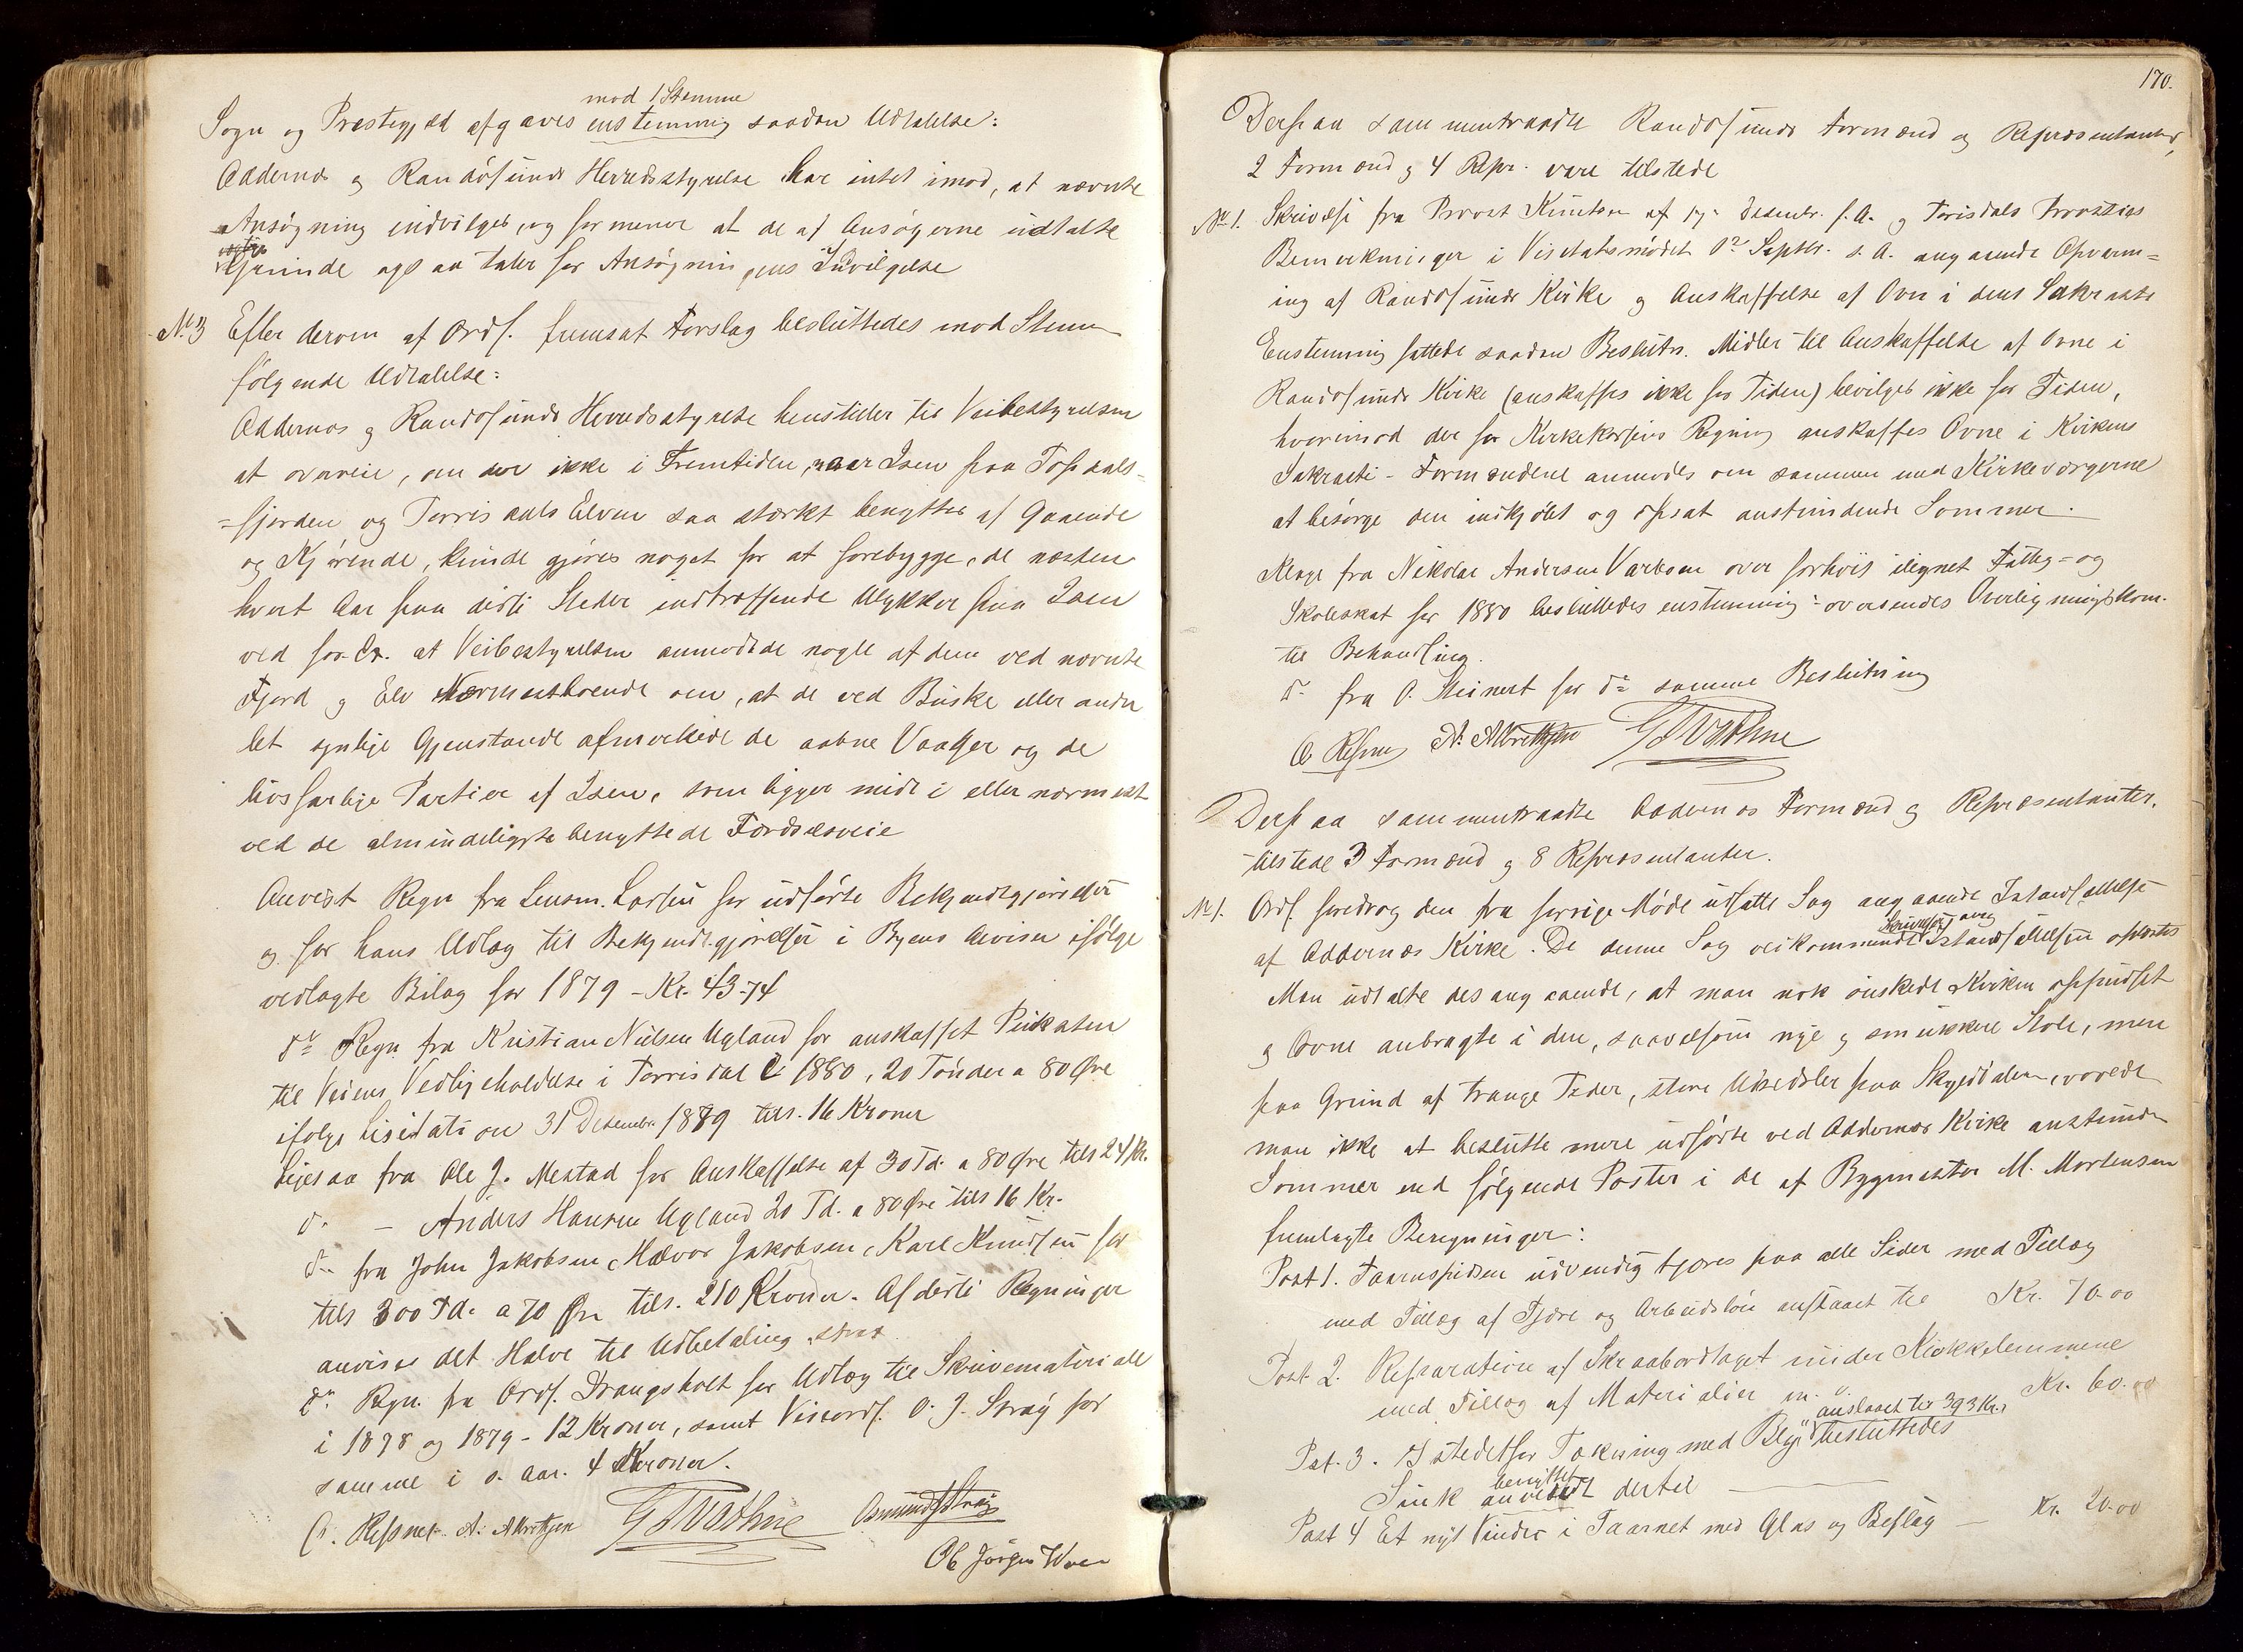 mod 1 Stemme
Sogn og Præstegjæld afgaves enstemmig saadan Udtalelse:
Oddernes og Randøsunds Herredsstyrelse har intet imod, at nævnte
Ansøgning indvilges, og formener at de af Ansøgerne udtalte
vægtige
Grunde ogsaa taler for Ansøgningens Indvilgelse
No 3 Efter derom af Ordf. fremsat Forslag besluttedes mod Stemme
følgende Udtalelse:
Oddernes og Randøsunds Herredsstyrelse henstiller til Veibestyrelsen
at overveie, om der ikke i Fremtiden, naar Isen paa Topdals-
=fjorden og Torrisdals Elven saa stærkt benyttes af Gaaende
og Kjørende, kunde gjøres noget for at forebygge, de næsten
hvert Aar paa disse Steder indtræffende Ulykker paa Isen
ved for Ex. at Veibestyrelsen anmodede nogle af dem ved nævnte
Fjord og Elv Nærmestboende om, at de ved Buske eller andre
let synlige Gjenstande afmærkede de aabne Vaager og de
livsfarlige Partier af Isen, som ligger midt i eller nærmest
ved de almindeligste benyttede Færdselsveie
Anvist Regn fra Lensm. Larsen for udførte Bekjendtgjørelser
og for hans Udlæg til Bekjendtgjørelser i Byens Aviser ifølge
vedlagte Bilag for 1879 - Kr. 43-74
do Regn fra Kristian Nielsen Ugland for anskaffet Pukksten
til Veiens Vedligeholdelse i Torrisdal 1880, 20 Tønder a 80 Øre
ifølge Lisitation 31 Desember 1879 tils. 16 Kroner
Ligesaa fra Ole J. Mestad for Anskaffelse af 30 Td. a 80 Øre tils 24 Kr.
do - Anders Hansen Ugland 20 Td. a 80 Øre tils 16 Kr.
do fra John Jakobsen, Halvor Jakobsen, Karl Knudsen for
tils 300 Td. a 70 Øre tils. 210 Kroner. Af disse Regninger
anvises det Halve til Udbetaling strax
do Regn. fra Ordf. Drangsholt for Udlæg til Skrivemateriale
i 1878 og 1879 - 12 Kroner, samt Viseordf. O. J. Strøy for
samme i s. Aar. 4 Kroner.
A. Albretsen G T Wathne Osmund Strøy
Ole Jørgen
170.
Derpaa sammentraadte Randøsunds Formænd og Repræsentanter,
2 Formænd og 4 Repr. vare tilstede
No 1. Skrivelse fra Provst Knutsen af 17de Desembr. f. A. og Torisdals Provsties
Bemerkninger i Visitatsmødet Septbr. s. A. angaaende Opvarm=
ing af Randøsunds Kirke og Anskaffelse af Ovn i dens Sakraste
Enstemmig fattede saadan Beslutn. Midler til Anskaffelse af Ovne i
Randøsunds Kirke (anskaffes ikke for Tiden) bevilges ikke for Tiden,
hvorimod der for Kirkekassens Regning anskaffes Ovne i Kirkens
Sakrasti - Formændene anmodes om sammen med Kirkeværgerne
at besørge den indkjøbt og opsat anstundende Sommer.
Klage fra Nikolai Andersen Varboen over forhøit ilignet Fattig- og
Skoleskat for 1880 besluttedes enstemmig: oversendes Overligningskom.
til Behandling.
do fra O. Steinert for do samme Beslutning
A. Albretsen G T Wathne
Derpaa sammentraadte Oddernes Formænd og Repræsentanter.
tilstede 3 Formænd og 8 Repræsentanter.
No 1. Ordf. foredrog den fra forrige Møde udsatte Sag angaaende Istandsættelse
Skrivelser ang
af Oddernes Kirke. De denne Sag vedkommende Istandsættelsen oplæstes
Man udtalte desangaaende, at man nok ønskede Kirken oppudset
og Ovne anbragte i den, saavelsom nye og smukkere Stole, men
paa Grund af trange Tider, store Udredsler paa Skydsdalen, vovede
man ikke at beslutte mere udførte ved Oddernes Kirke anstundende
Sommer end følgende Poster i de af Bygmester M. Mortensen
fremlagte Beregninger:
Post 1. Taarnspidsen udvendig tjæres paa alle Sider med Tillæg
med Tillæg af Tjære og Arbeidsløn anslaaet til Kr. 70.00
Post 2. Reparation af Skraabordtaget under Klokkelemmene
med Tillæg af Materialier m. v. Kr. 60.00
anslaaet til 393 Kr,
Post. 3. Istedetfor Tækning med Bly besluttedes
benyttet
Sink anvendt dertil
Post 4 Et nyt Vindu i Taarnet med Glas og Beslag - Kr. 20.00